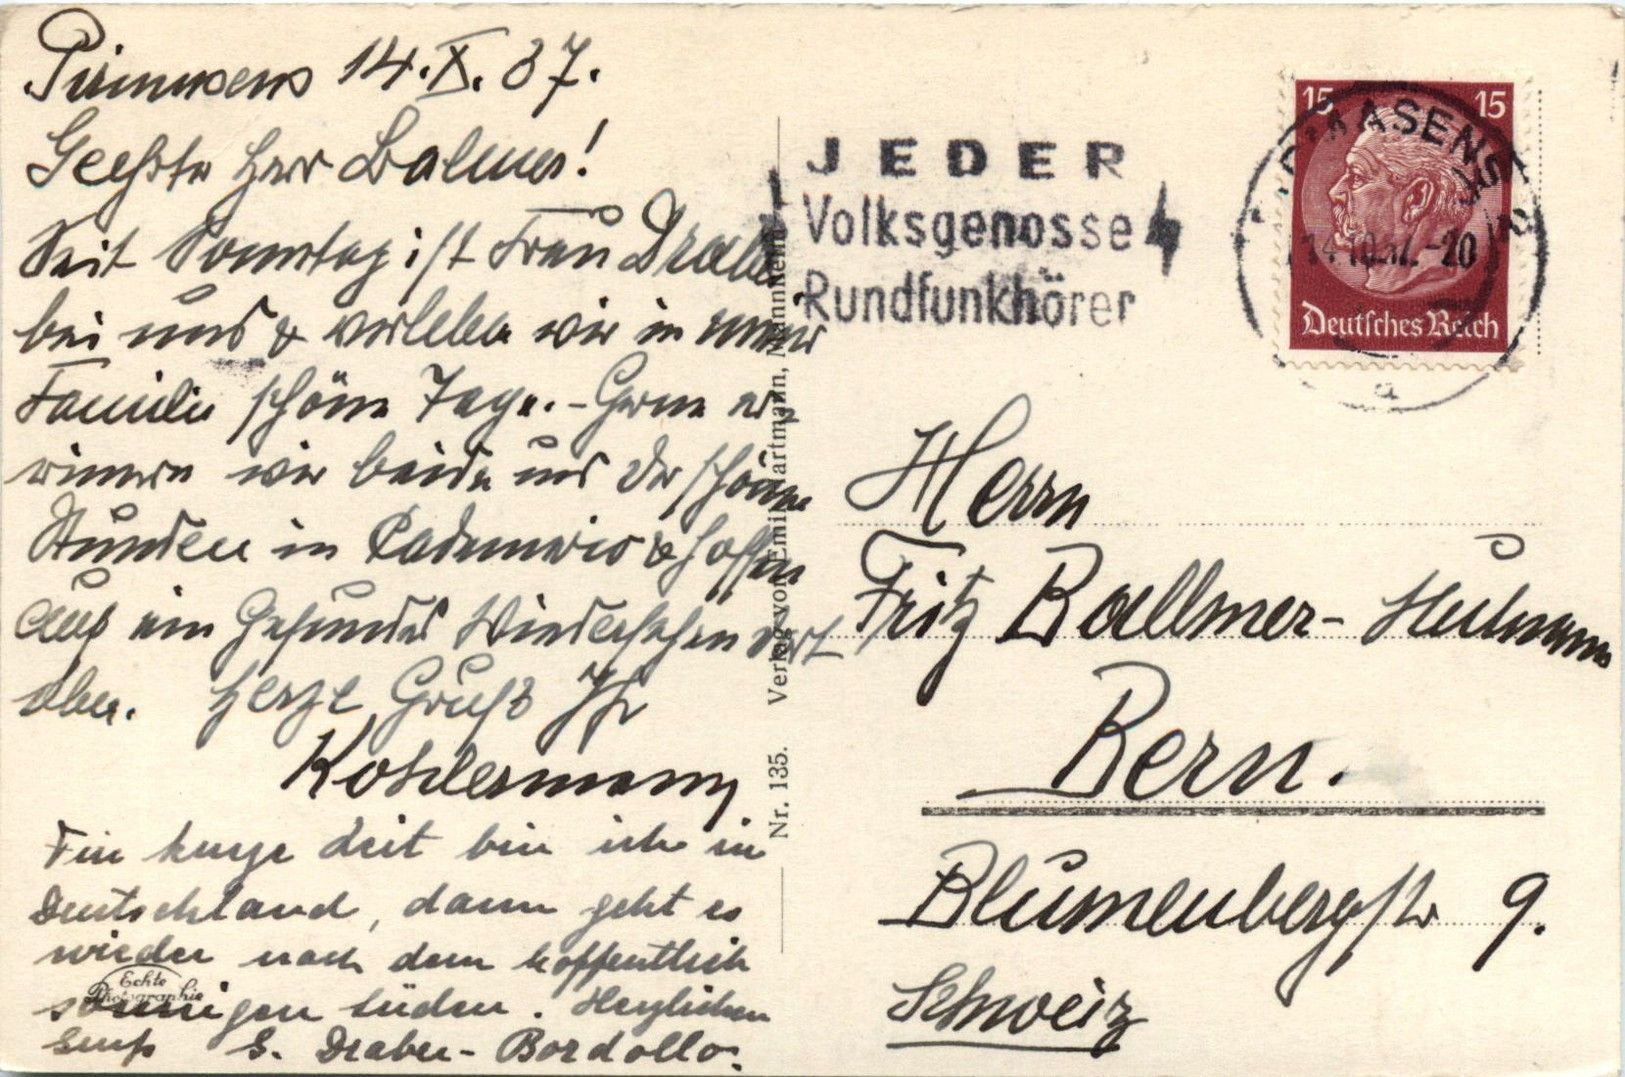 Pirmasens 14.X.37.
Geehrter Herr Balmer!
Seit Sonntag ist Frau Draber
bei uns & verleben wir in unserer
Familie schöne Tage. - Gerne er
innern wir beide uns der schönen
Stunden in & hoffen
auf ein gesundes Wiedersehen dort
oben. Herzl Gruß Ihr
Kohlermann
Für kurze Zeit bin ich in
Deutschland, dann geht es
wieder nach dem hoffentlich
sonnigen Süden. Herzlichen
Gruß S. Draber-Bordollo.
Echte
Photographie
Nr. 135. Verlag von Emil Hartmann, Mannheim
JEDER
Volksgenosse
Rundfunkhörer
PIRMASENS
14.10.37.-20
a
15 15
Deutsches Reich
Herrn
Fritz Ballmer-
Bern.
Blumenbergstr 9.
Schweiz